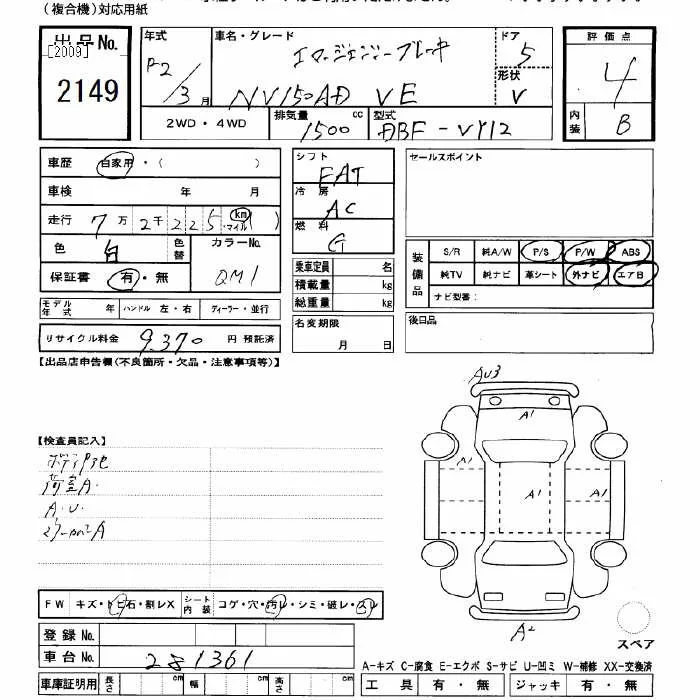 (複合機)対応用紙
出品No.
[2009]
2149
年式
車名・グレード
ドア
評価点
エマージェンシーブレーキ
R2/3月
NV150AD VE
5
形状
V
4
内装 B
2WD・4WD
排気量 1500 cc
型式 DBF-VY12
車歴 自家用・( )
車検 年 月
走行 7万2千225 km マイル ( )
色 白 色替
カラーNo. QM1
保証書 有・無
モデル年式 年 ハンドル 左・右 ディーラー・並行
リサイクル料金 9,370 円 預託済
シフト FAT
冷房 AC
燃料 G
乗車定員 名
積載量 kg
総重量 kg
名変期限
月 日
セールスポイント
装備品
S/R 純A/W P/S P/W ABS
純TV 純ナビ 革シート 外ナビ エアB
ナビ型番:
後日品
【出品店申告欄(不良箇所・欠品・注意事項等)】
AU3
A1
A1
A1
A1
A2
スペア
【検査員記入】
荷室A.
A.U.
FW キズ・トビ石・割レX
シート内装 コゲ・穴・汚レ・シミ・破レ・スレ
登録No.
車台No. 281361
車庫証明用 長さ cm 幅 cm 高さ cm
A-キズ C-腐食 E-エクボ S-サビ U-凹ミ W-補修 XX-交換済
工具 有・無 ジャッキ 有・無